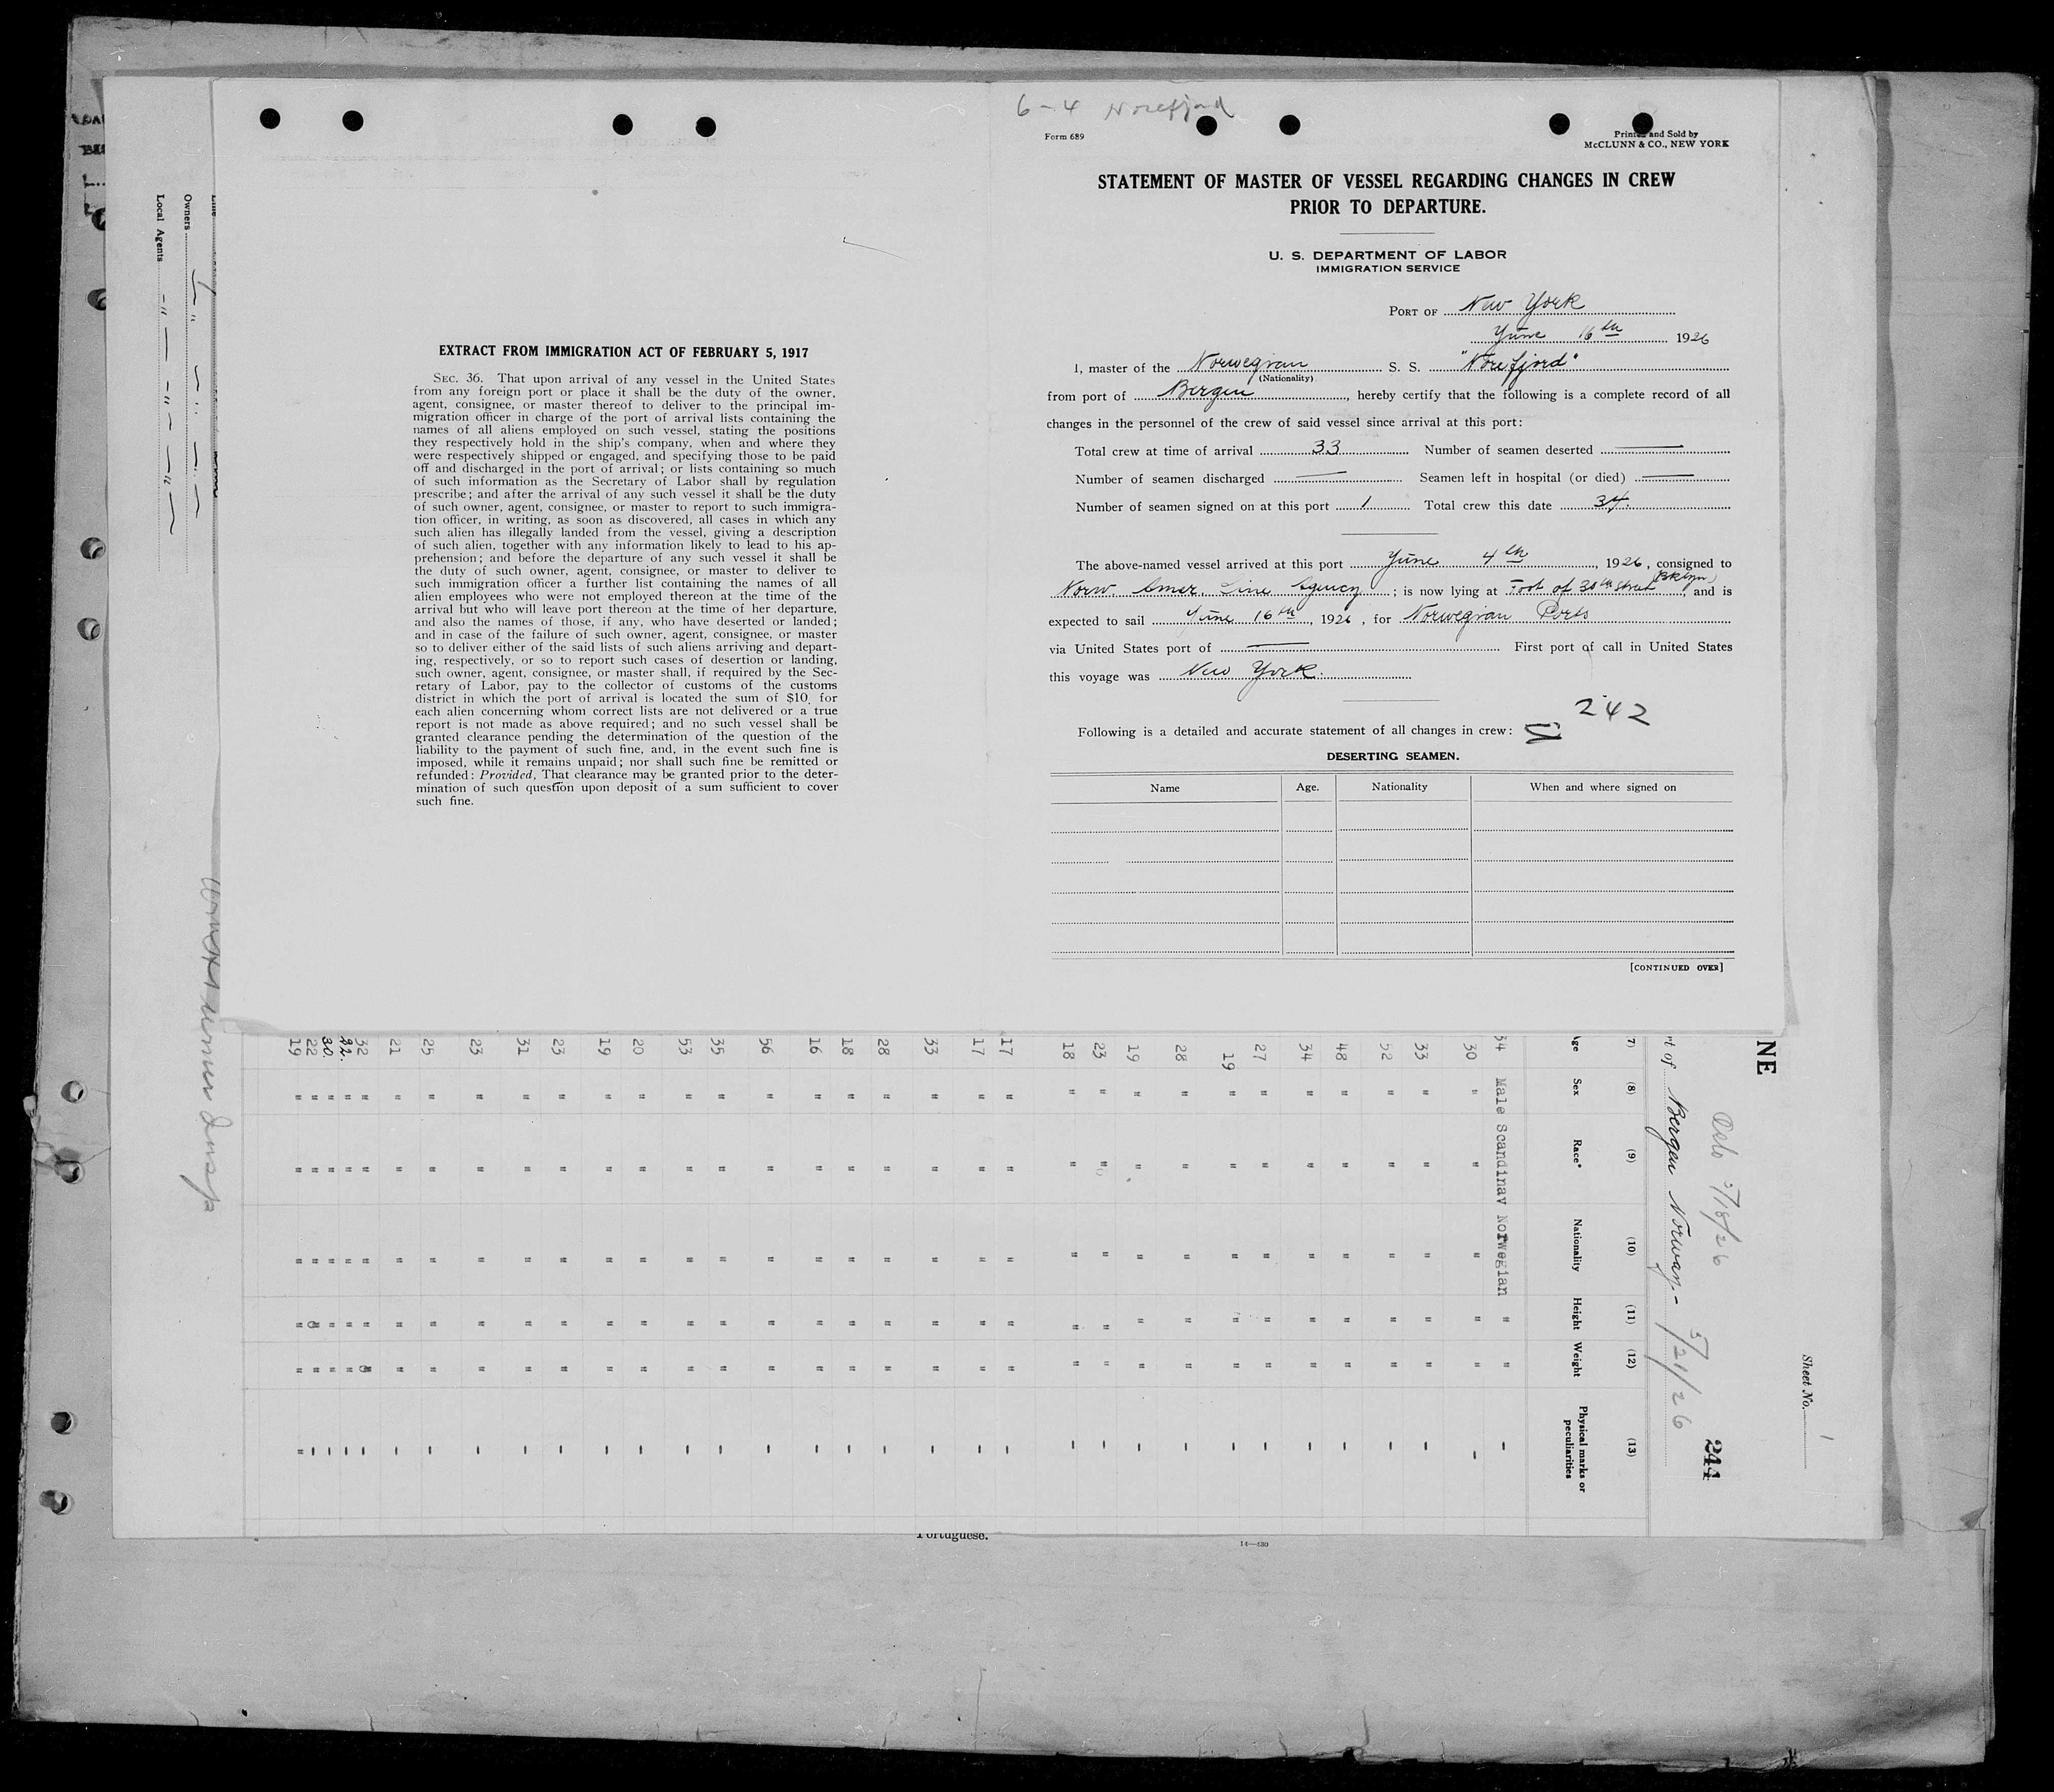 6-4 Norefjord
Form 689
Printed and Sold by
McCLUNN & CO., NEW YORK
STATEMENT OF MASTER OF VESSEL REGARDING CHANGES IN CREW
PRIOR TO DEPARTURE.
U. S. DEPARTMENT OF LABOR
IMMIGRATION SERVICE
PORT OF New York
June 16th 1926
I, master of the Norwegian S. S. "Norefjord"
(Nationality)
from port of Bergen, hereby certify that the following is a complete record of all
changes in the personnel of the crew of said vessel since arrival at this port:
Total crew at time of arrival 33 Number of seamen deserted —
Number of seamen discharged — Seamen left in hospital (or died) —
Number of seamen signed on at this port 1 Total crew this date 34.
The above-named vessel arrived at this port June 4th, 1926, consigned to
Norw. Amer. Line Agency; is now lying at Foot of 30th Street Bklyn, and is
expected to sail June 16th, 1926, for Norwegian Ports
via United States port of — First port of call in United States
this voyage was New York.
242
Following is a detailed and accurate statement of all changes in crew:
DESERTING SEAMEN.
Name Age. Nationality When and where signed on
[CONTINUED OVER]
EXTRACT FROM IMMIGRATION ACT OF FEBRUARY 5, 1917
SEC. 36. That upon arrival of any vessel in the United States
from any foreign port or place it shall be the duty of the owner,
agent, consignee, or master thereof to deliver to the principal im-
migration officer in charge of the port of arrival lists containing the
names of all aliens employed on such vessel, stating the positions
they respectively hold in the ship's company, when and where they
were respectively shipped or engaged, and specifying those to be paid
off and discharged in the port of arrival; or lists containing so much
of such information as the Secretary of Labor shall by regulation
prescribe; and after the arrival of any such vessel it shall be the duty
of such owner, agent, consignee, or master to report to such immigra-
tion officer, in writing, as soon as discovered, all cases in which any
such alien has illegally landed from the vessel, giving a description
of such alien, together with any information likely to lead to his ap-
prehension; and before the departure of any such vessel it shall be
the duty of such owner, agent, consignee, or master to deliver to
such immigration officer a further list containing the names of all
alien employees who were not employed thereon at the time of the
arrival but who will leave port thereon at the time of her departure,
and also the names of those, if any, who have deserted or landed;
and in case of the failure of such owner, agent, consignee, or master
so to deliver either of the said lists of such aliens arriving and depart-
ing, respectively, or so to report such cases of desertion or landing,
such owner, agent, consignee, or master shall, if required by the Sec-
retary of Labor, pay to the collector of customs of the customs
district in which the port of arrival is located the sum of $10 for
each alien concerning whom correct lists are not delivered or a true
report is not made as above required; and no such vessel shall be
granted clearance pending the determination of the question of the
liability to the payment of such fine, and, in the event such fine is
imposed, while it remains unpaid; nor shall such fine be remitted or
refunded: Provided, That clearance may be granted prior to the deter-
mination of such question upon deposit of a sum sufficient to cover
such fine.
Owners
Local Agents
Sheet No. 1
NE
Oslo 5/18/26
244
rt of Bergen Norway.- 5/21/26
(7) (8) (9) (10) (11) (12) (13)
Age Sex Race* Nationality Height Weight Physical marks or
peculiarities
34 Male Scandinav Norwegian " " -
30 " " " " " -
33 " " " " " -
52 " " " " " -
48 " " " " " -
34 " " " " " -
27 " " " " " -
19 " " " " " -
28 " " " " " -
19 " " " " " -
23 " " " " " -
18 " " " " " -
17 " " " " " -
17 " " " " " -
33 " " " " " -
28 " " " " " -
18 " " " " " -
16 " " " " " -
56 " " " " " -
35 " " " " " -
53 " " " " " -
20 " " " " " -
19 " " " " " -
23 " " " " " -
31 " " " " " -
23 " " " " " -
25 " " " " " -
21 " " " " " -
32 " " " " " -
22. " " " " " -
30. " " " " " -
22 " " " " " -
19 " " " " " "
Portuguese.
14—430